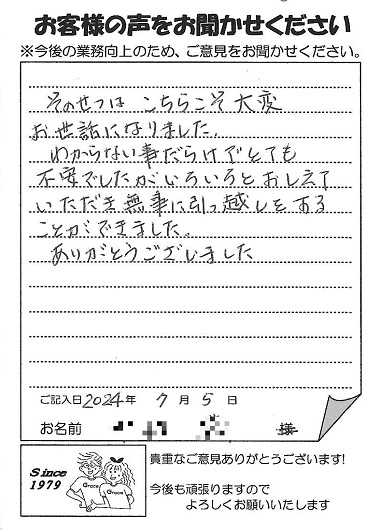 お客様の声をお聞かせください
※今後の業務向上のため、ご意見をお聞かせください。
そのせつは こちらこそ 大変
お世話になりました。
わからない事だらけでとても
不安でしたがいろいろとおしえて
いただき無事に引っ越しをする
ことができました。
ありがとうございました
ご記入日 2024年 7月 5日
お名前 様
Since
1979
Grace
Grace
貴重なご意見ありがとうございます!
今後も頑張りますので
よろしくお願いいたします